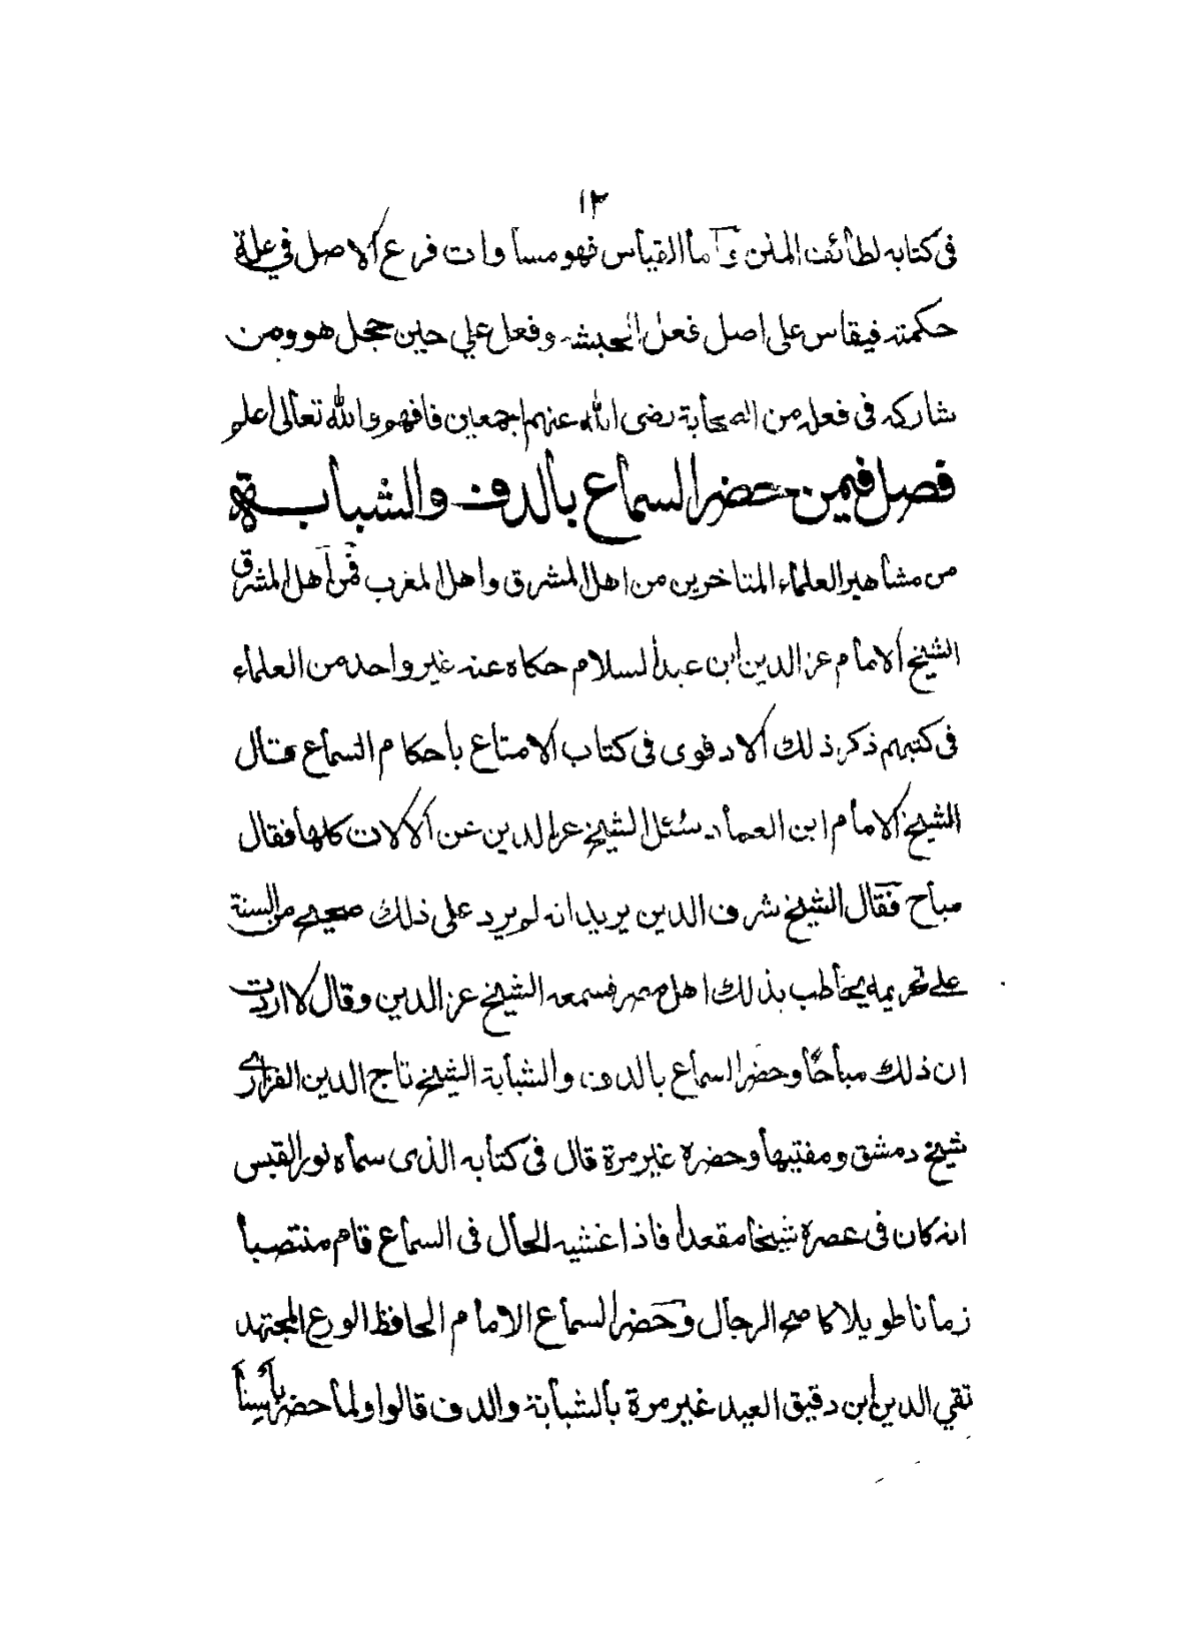 ١٣
فى كتابه لطائف المنن وأما القياس فهو مساوات فرع الاصل في علة
حكمته فيقاس على اصل فعل الحبشه وفعل علي حين حجل هو ومن
شاركه فى فعله من الصحابة رضى الله عنهم اجمعين فافهم والله تعالى اعلم
فصل فيمن حضر السماع بالدف والشبابة
من مشاهير العلماء المتاخرين من اهل المشرق واهل المغرب فمن أهل المشرق
الشيخ الامام عز الدين ابن عبد السلام حكاه عنه غير واحد من العلماء
فى كتبهم ذكر ذلك الادفوى فى كتاب الامتاع باحكام السماع قال
الشيخ الامام ابن العماد سئل الشيخ عز الدين عن الالات كلها فقال
مباح فقال الشيخ شرف الدين يريد انه لم يرد على ذلك صحيح من السنة
على تحريمه يخاطب بذلك اهل مصر فسمعه الشيخ عز الدين وقال لا اردت
ان ذلك مباحًا وحضر السماع بالدف والشبابة الشيخ تاج الدين الفزارى
شيخ دمشق ومفتيها وحضره غير مرة قال فى كتابه الذى سماه نور القبس
انه كان فى عصره شيخا مقعدا فاذا غشيه الحال فى السماع قام منتصبا
زمانا طويلا كاصح الرجال وحضر السماع الامام الحافظ الورع المجتهد
تقي الدين ابن دقيق العيد غير مرة بالشبابة والدف قالوا ولما حضر